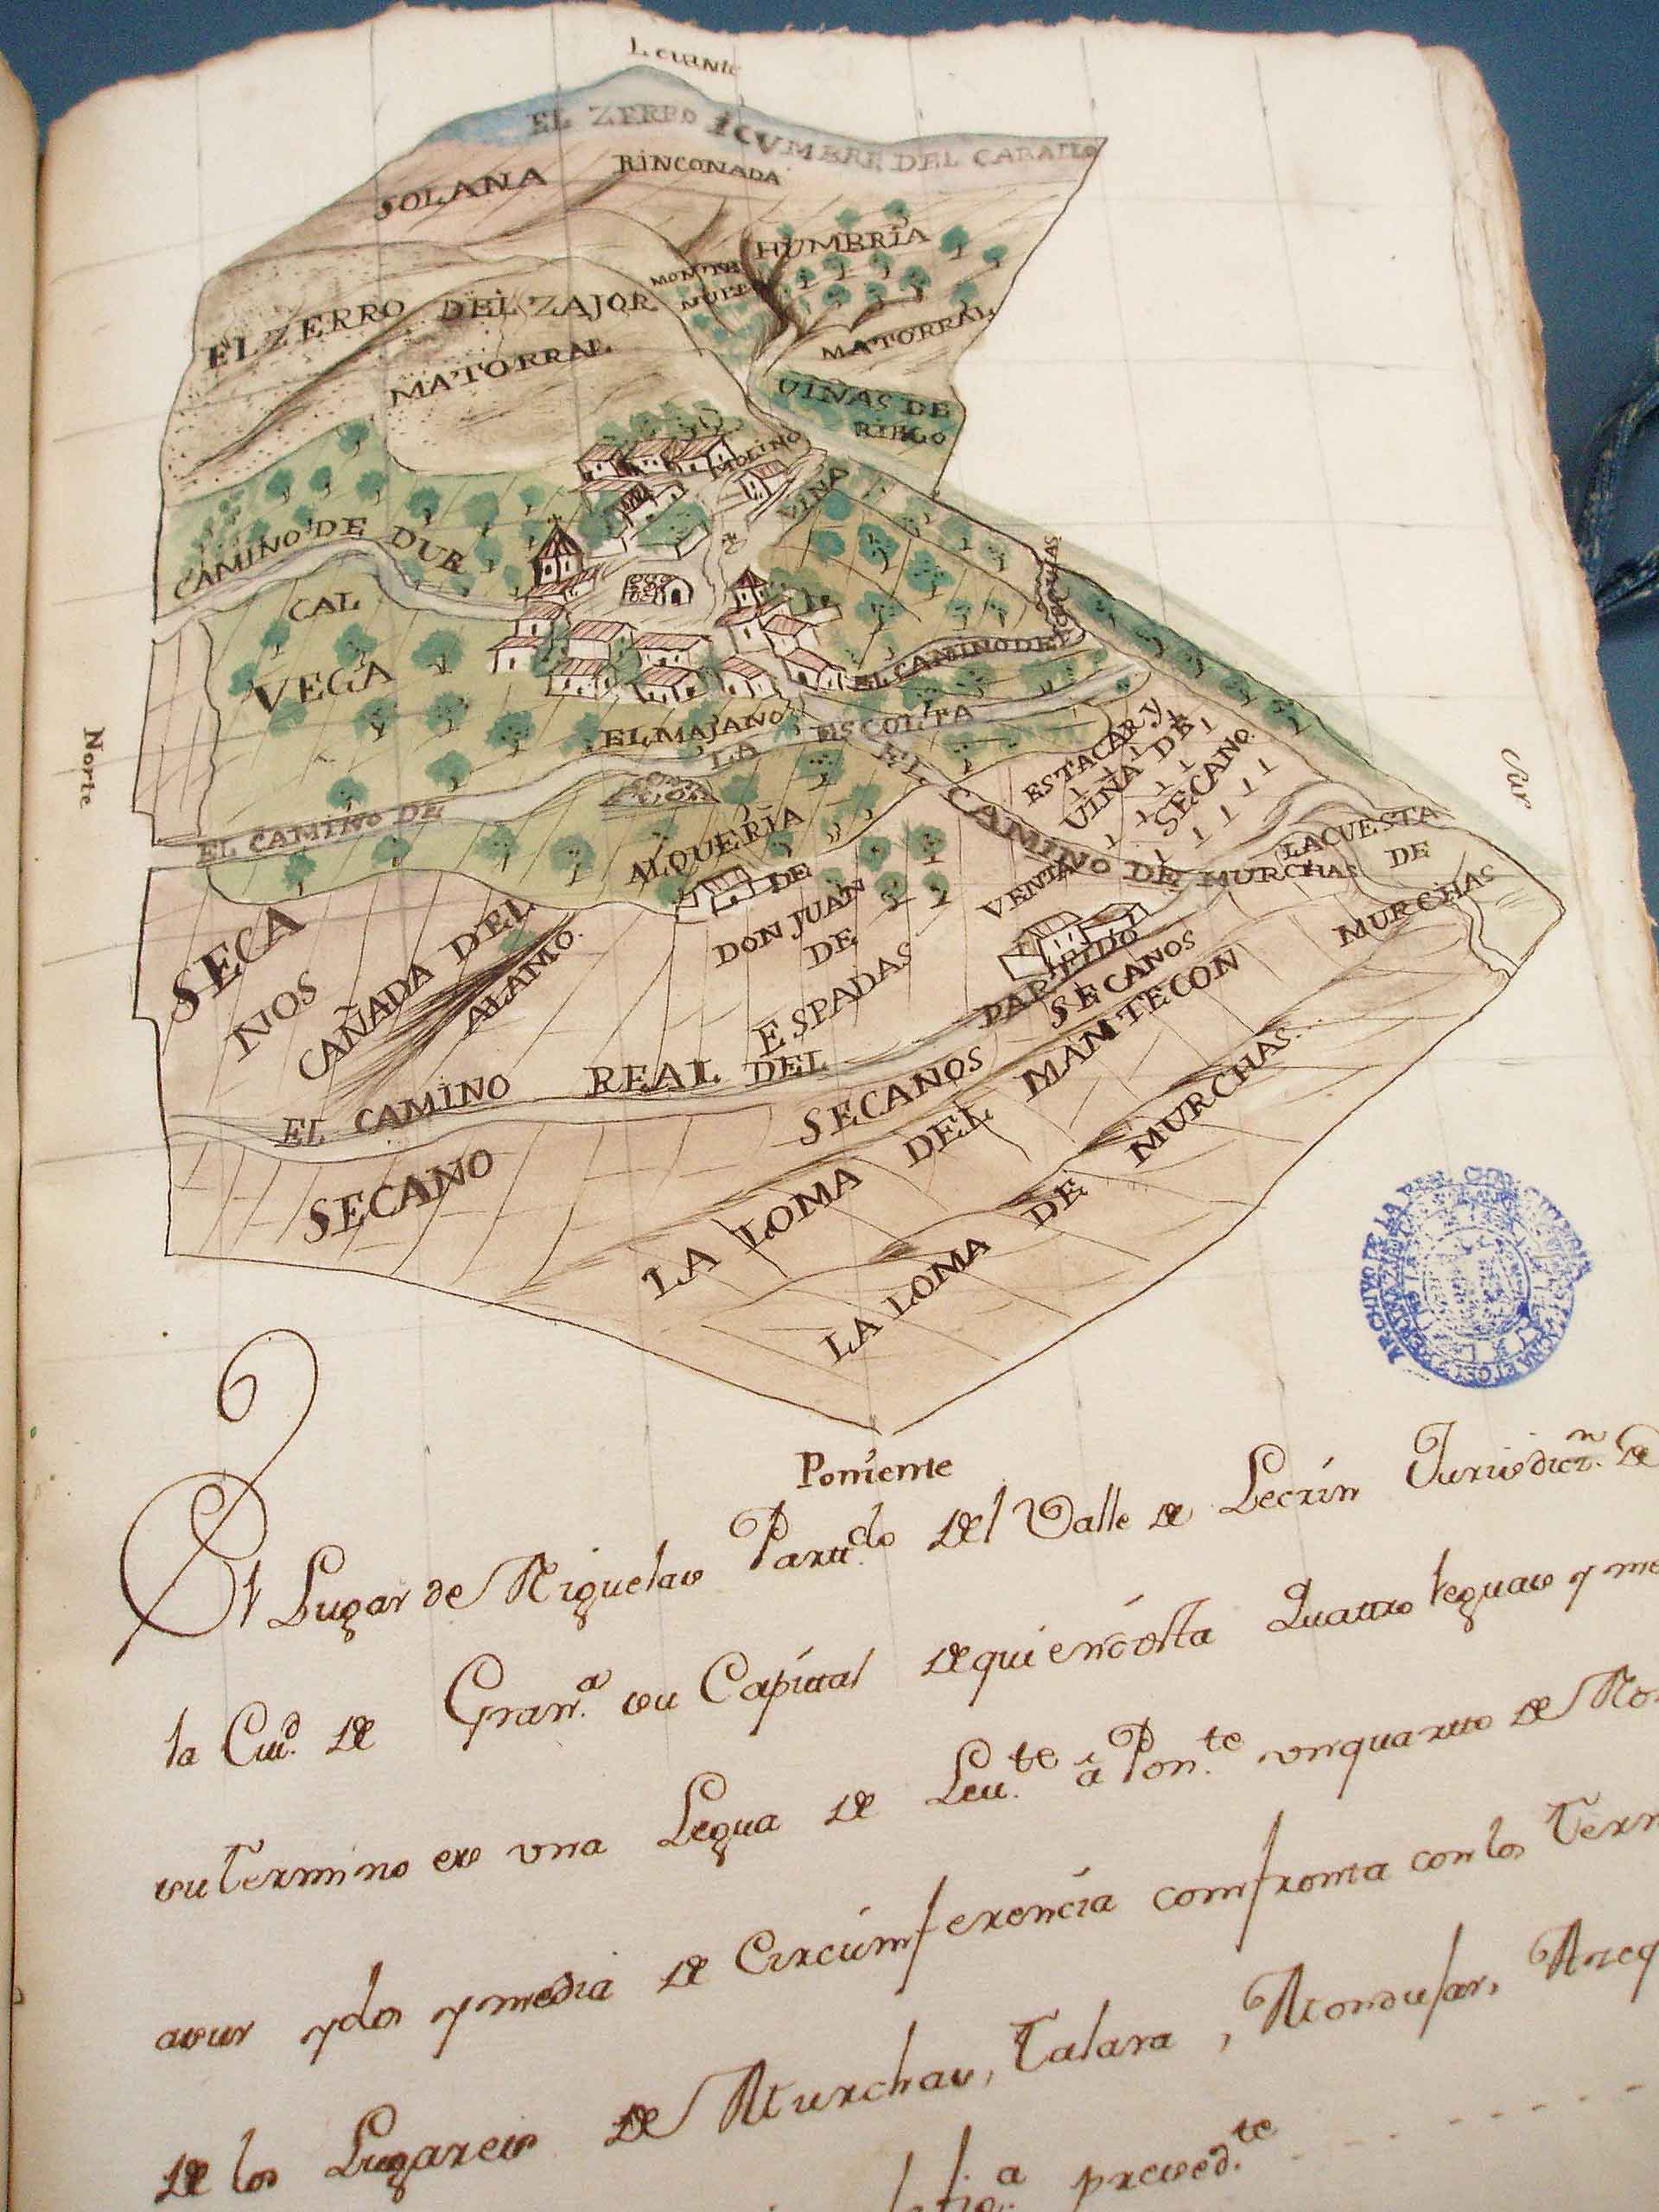 Levante
EL ZERRO I CVMBRE DEL CABALLO
SOLANA
RINCONADA
HUMBRIA
MONTE
EL ZERRO DEL ZAJOR
MATORRAL
MATORRAL
VIÑAS DE
RIEGO
MOLINO
VIÑA
CAMINO DE DUR
CAL
VEGA
EL CAMINO DE
EL MAJANO
LA ESCOLTA
EL CAMINO DE
ESTACAR Y
VIÑA DE
SECANO
EL CAMINO DE MURCHAS
LA CUESTA
DE
MURCHAS
Norte
Sur
ALQUERIA
DE
DON JUAN
DE
ESPADAS
VENTA
SECA
NOS
CAÑADA DEL
ALAMO.
EL CAMINO REAL DEL
PADUL
PARTIDO
SECANOS
SECANO
SECANOS
LA LOMA DEL MANTECON
LA LOMA DE MURCHAS.
Poniente
El Lugar de Niguelas Part.do del Valle de Lecrin Jurisdicz.n de
la Ciu.d de Gran.a su Capital de qui en dista Quattro leguas y me
su Termino es una Legua de Lev.te à Pon.te un quarto de No
a sur y dos y media de Circumferencia comfronta con los Term
de los Lugares de Murchas, Talara, Mondujar, Aceq
preced.te